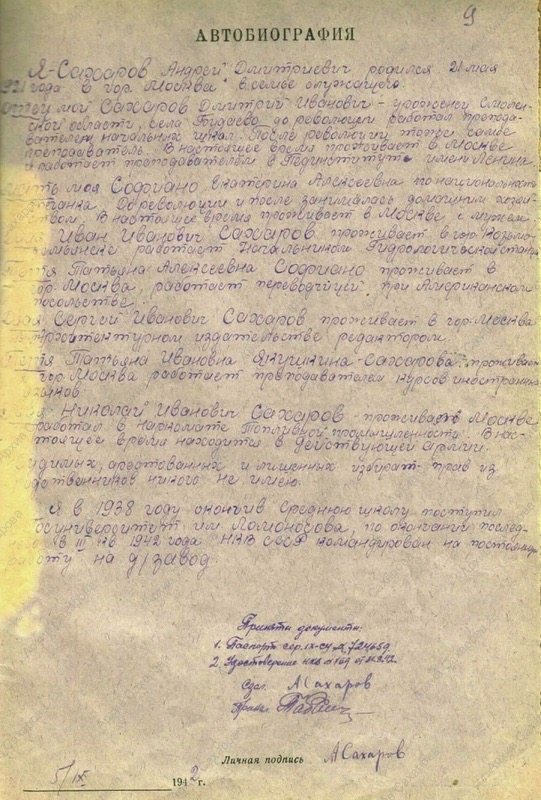 9
АВТОБИОГРАФИЯ
Я-Сахаров Андрей Дмитриевич родился 21 мая
1921 года в гор Москва в семье служащего.
Отец мой Сахаров Дмитрий Иванович - уроженец Смолен-
ской области, села Будаево до революции работал препода-
вателем начальных школ. После революции также
преподаватель. В настоящее время проживает в Москве
и работает преподавателем в Пединституте имени Ленина.
Мать моя Софиано Екатерина Алексеевна по национальности
До революции и после занималась домашним хозяй-
ством. В настоящее время проживает в Москве с мужем.
Дядя Иван Иванович Сахаров, проживает в гор.
работает Начальником Гидрологической станции
Тетя Татьяна Алексеевна Софиано проживает в
гор Москва, работает переводчицей при Американском
посольстве.
Дядя Сергей Иванович Сахаров проживает в гор Москва
в Архитектурном издательстве редактором.
Тетя Татьяна Ивановна Якушкина-Сахарова проживает
в гор Москва работает преподавателем курсов иностранных
языков.
Дядя Николай Иванович Сахаров проживает Москве
работал в Наркомате Топливной промышленности. В нас-
тоящее время находится в действующей армии.
Судимых, арестованных и лишенных избират. прав из
родственников никого не имею.
Я в 1938 году окончив среднюю школу поступил
Госуниверситет им Ломоносова, по окончании послед-
него в 1942 года НКВ СССР командирован на постоянную
работу на д/завод.
Приняты документы:
1. Паспорт сер. IX-СУ № 724659
2. Удостоверение НКВ № 169 от
Сдал. А Сахаров
Принял
Личная подпись А Сахаров
5/IX 1942 г.